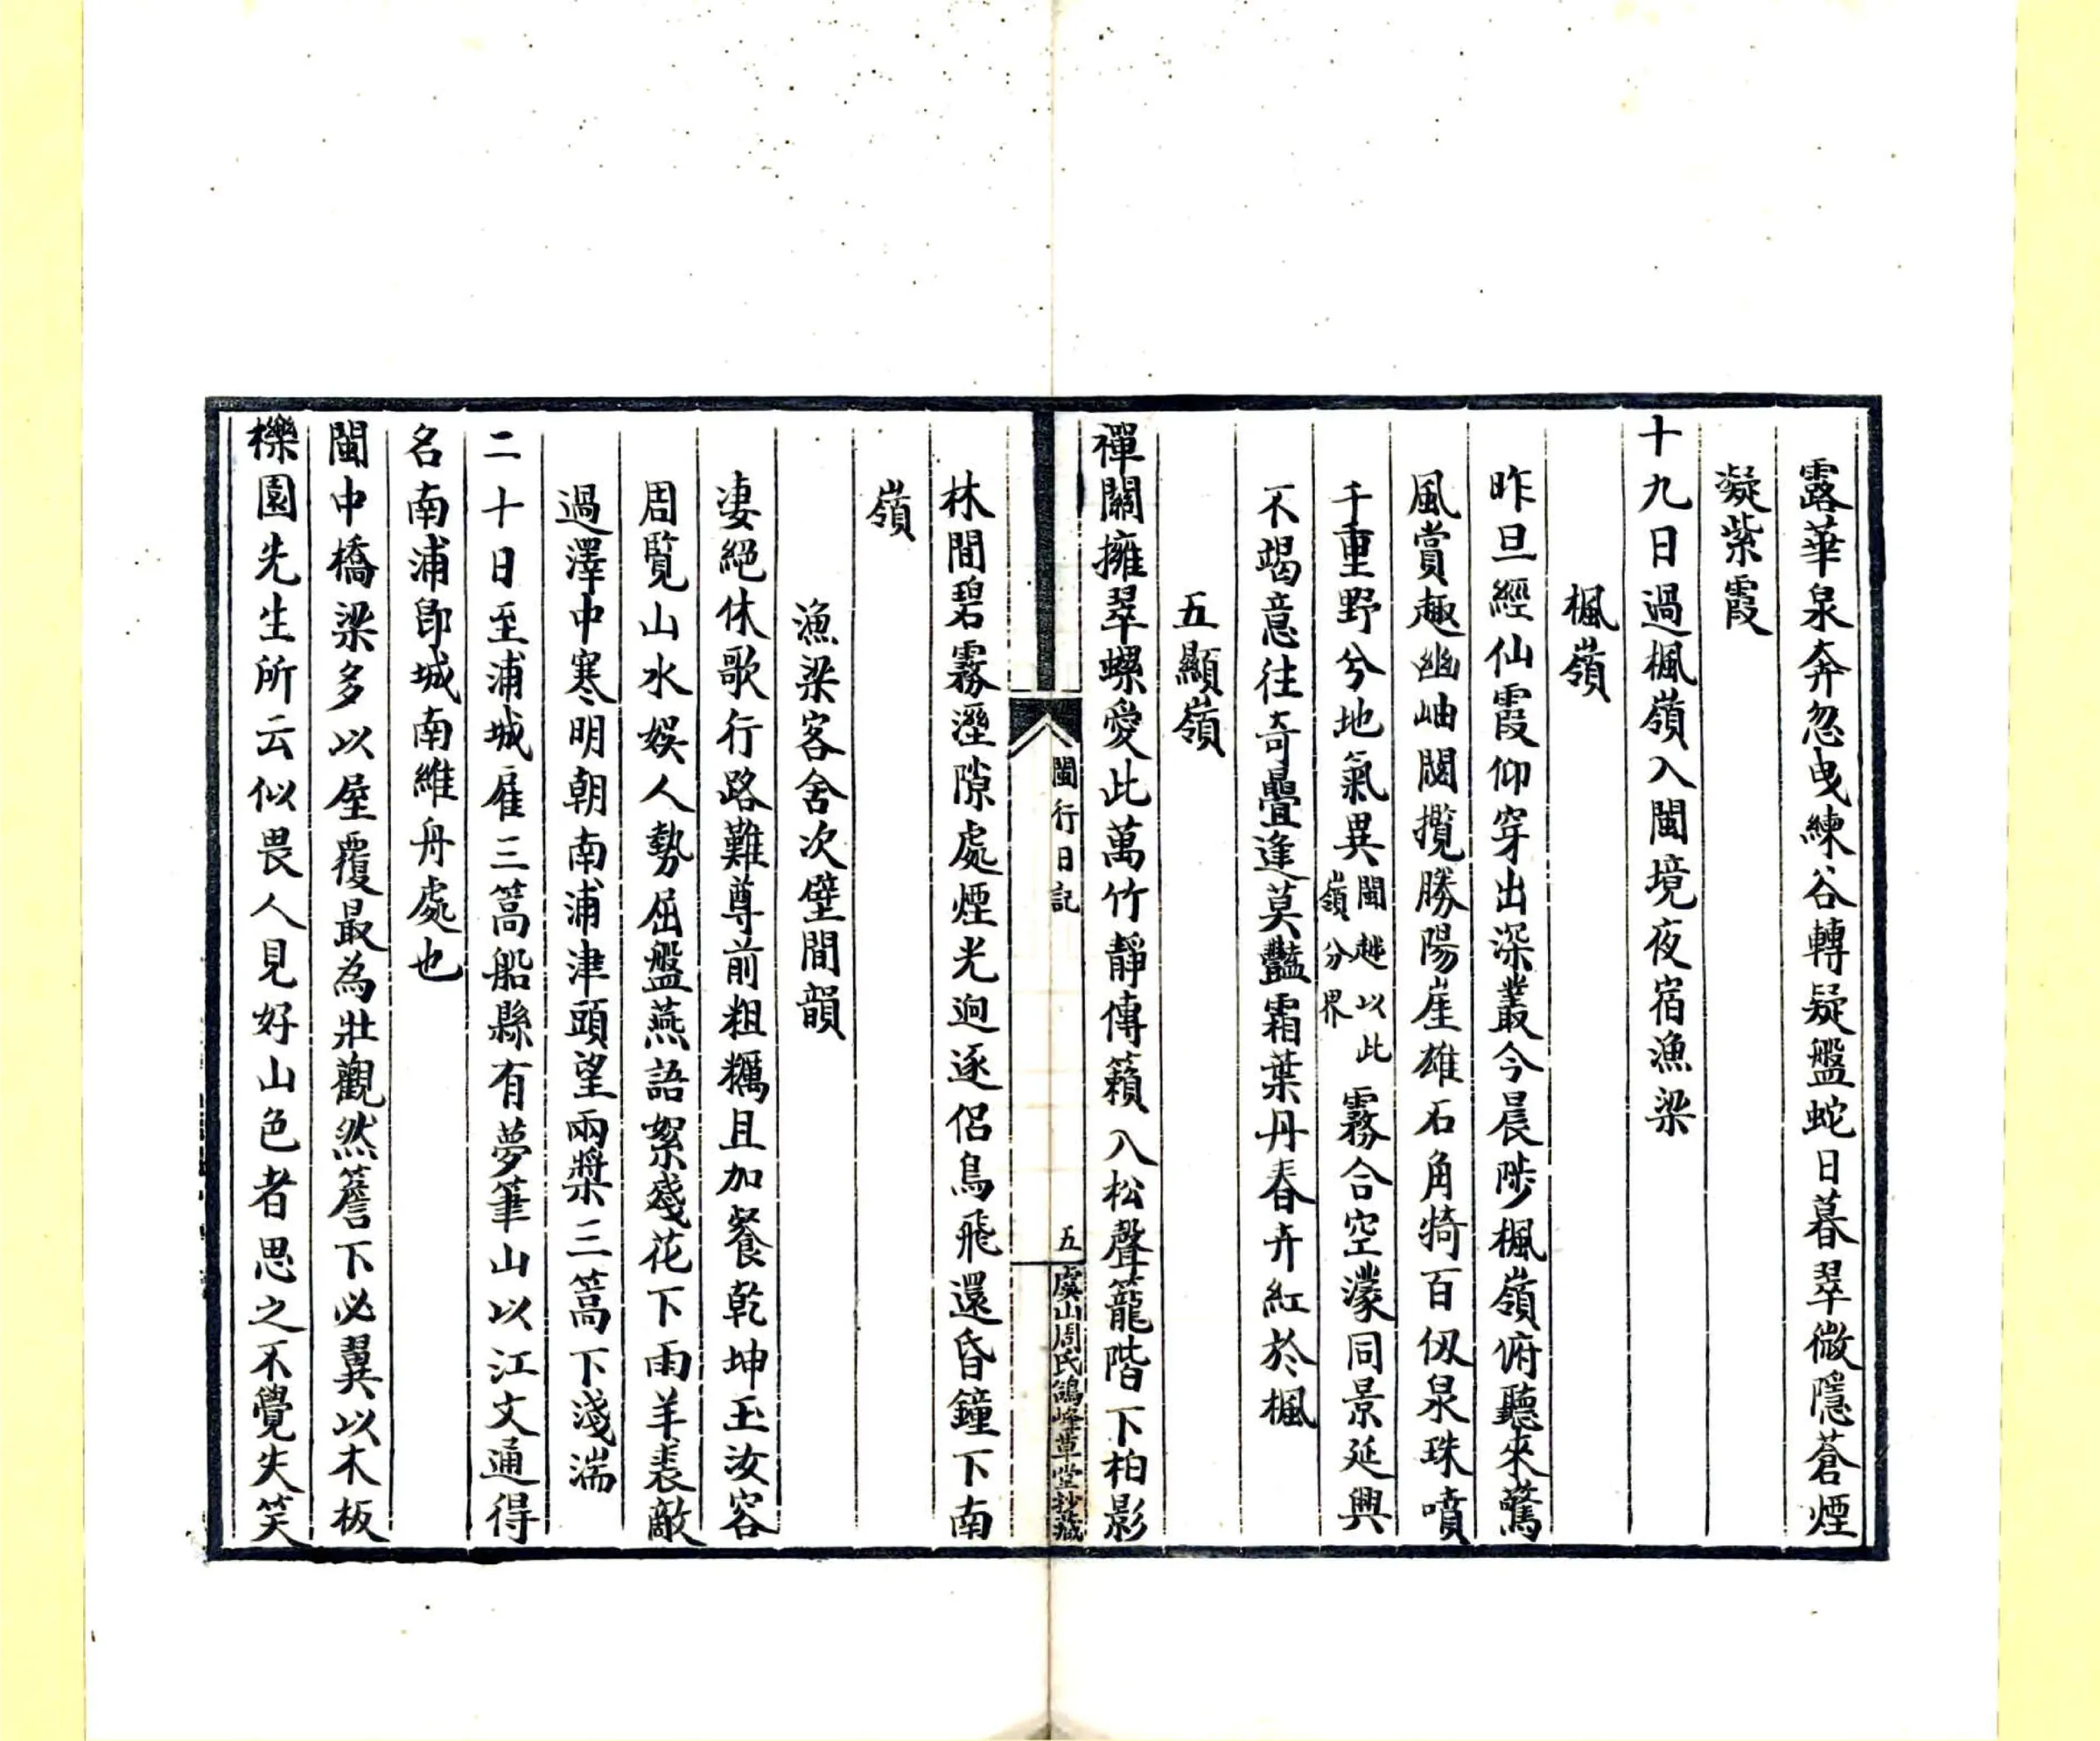 露華泉奔忽曳練谷轉疑盤蛇日暮翠微隱蒼煙
凝紫霞
十九日過楓嶺入閩境夜宿漁梁
楓嶺
昨旦經仙霞仰穿出深叢今晨陟楓嶺俯聽來驚
風賞趣幽岫閟攬勝陽崖雄石角犄百仭泉珠噴
千重野兮地氣異閩越以此嶺分界霧合空濛同景延興
不竭意往奇疊逢莫豔霜葉丹春卉紅於楓
五顯嶺
禪關擁翠螺愛此萬竹靜傳籟入松聲籠階下柏影
閩行日記
五
虞山周氏鴿峰草堂抄藏
林間碧霧溼隙處煙光迥逐侶鳥飛還昏鐘下南
嶺
漁梁客舍次壁間韻
淒絕休歌行路難尊前粗糲且加餐乾坤玉汝容
周覽山水娛人勢屈盤燕語絮殘花下雨羊裘敵
過澤中寒明朝南浦津頭望兩槳三篙下淺湍
二十日至浦城雇三篙船縣有夢筆山以江文通得
名南浦卽城南維舟處也
閩中橋梁多以屋覆最為壯觀然簷下必翼以木板
櫟園先生所云似畏人見好山色者思之不覺失笑